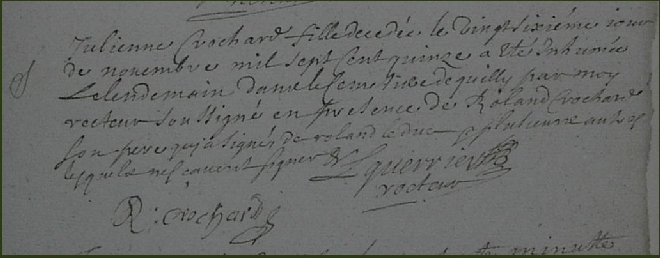 Julienne Crochard fille decedée le vingtsixiéme jour
de novembre mil sept cent quinze a été inhumée
Le lendemain dans le Cemetiere de quilly par moy
recteur soussigné en presence de Roland Crochard
son pere qui a signé de roland leduc et plusieurs autres
lesquels ne scavent signer
guerrier
recteur
R. crochard
minutte